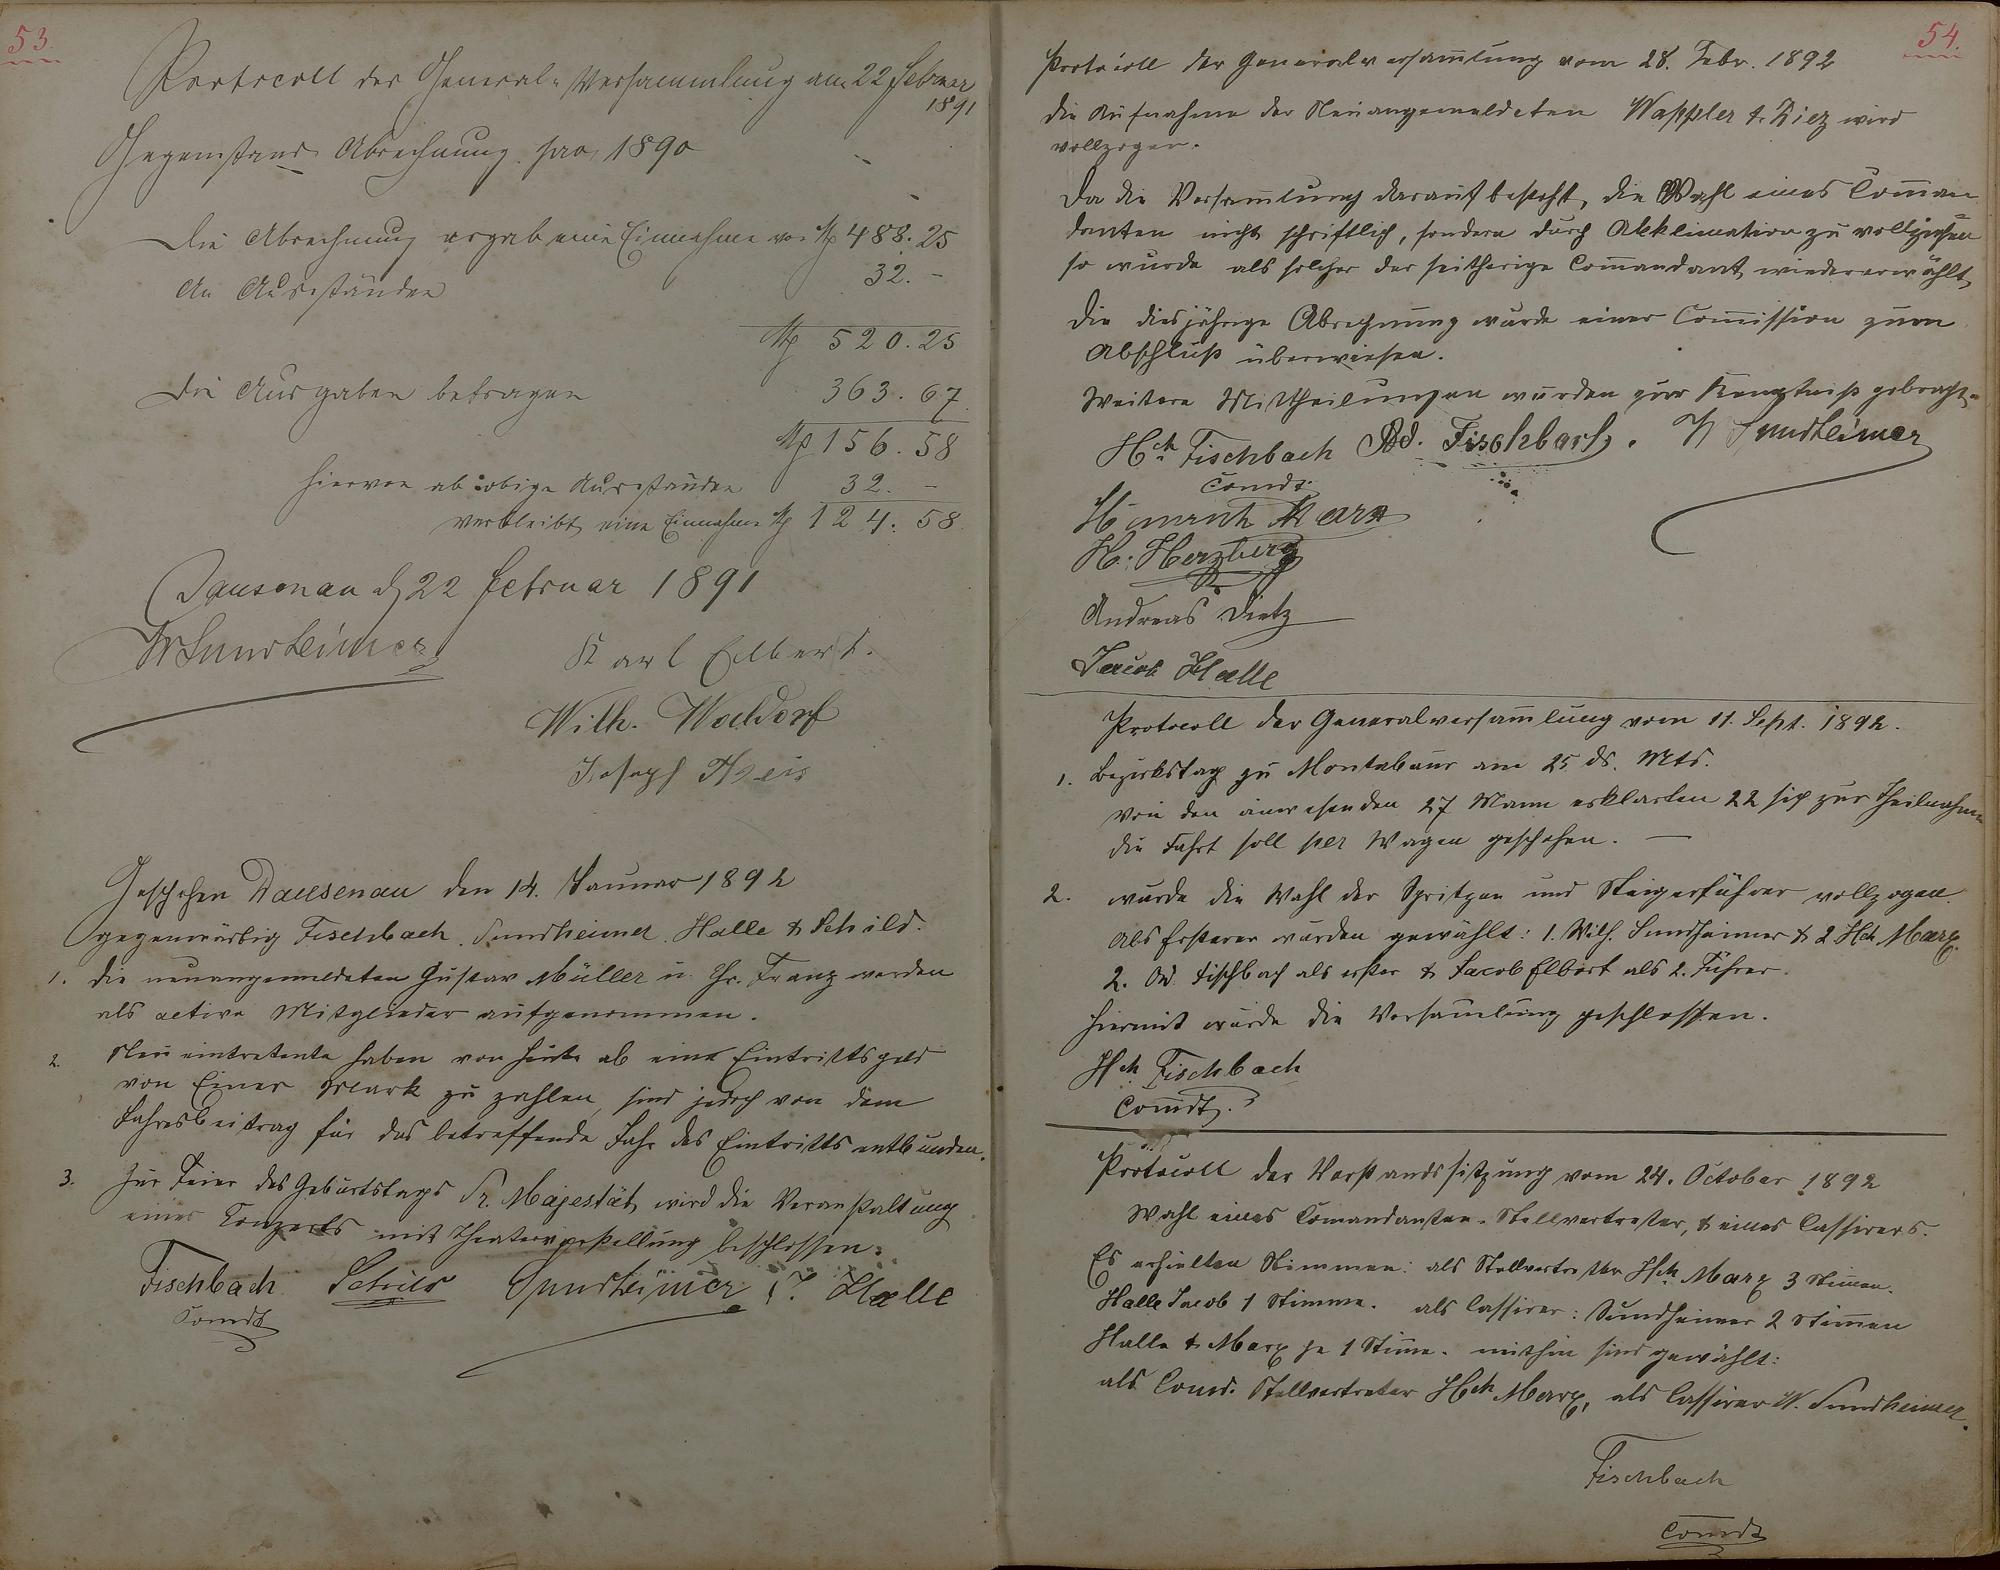 53.
Protocoll der General-Versammlung am 22 Februar
1891
Gegenstand Abrechnung pro 1890
Die Abrechnung ergab eine Einnahme von M 488.25
An Ausständen 32.–
M 520.25
Die Ausgaben betragen 363.67
M 156.58
Hiervon ab obige Ausstände 32.–
verbleibt eine Einnahme M 124.58
Dausenau d. 22 Februar 1891
W Sundheimer
Karl Elbert.
Wilh. Waldorf
Joseph
Geschehen Dausenau den 14. Januar 1892
gegenwärtig Fischbach, Sundheimer, Halle & Schild.
1. Die neuangemeldeten Gustav Müller u. Chr. Franz werden
als active Mitglieder aufgenommen.
2. Neu eintretente haben von heute ab eine Eintrittsgeld
von Einer Mark zu zahlen, sind jedoch von dem
Jahresbeitrag für das betreffende Jahr des Eintritts entbunden.
3. Zur Feier des Geburtstags Sr. Majestät wird die Veranstaltung
eines Conzerts mit Theatervorstellung beschlossen.
Fischbach Schild Sundheimer J. Halle
Comdt
54.
Protocoll der Generalversam̄lung vom 28. Febr. 1892
Die Aufnahme der Neuangemeldeten Wappler & Diez wird
vollzogen.
Da die Versam̄lung darauf besteht, die Wahl eines Com̄an
danten nicht schriftlich, sondern durch Akklimation zu vollziehen
so wurde als solcher der seitherige Com̄andant wiedererwählt,
Die diesjährige Abrechnung wurde einer Com̄ission zum
Abschluß überwiesen.
Weitere Mittheilungen wurden zur Kenntniß gebracht.
Hch Fischbach Ad. Fischbach. W Sundheimer
Comdt.
Heinrich Marx
H. Herzberg
Andreas Dietz
Jacob Halle
Protocoll der Generalversam̄lung vom 11. Sept. 1892.
1. Bezirkstag zu Montabaur am 25 ds. Mts.
Von den anwesenden 27 Mann erklärten 22 sich zur Theilnahme
die Fahrt soll per Wagen geschehen. —
2. wurde die Wahl der Spritzen und Steigerführer vollzogen.
Als Ersterer wurden gewählt: 1. Wilh. Sundheimer & 2 Hch Marx.
2. Ad. Fischbach als erster & Jacob Elbert als 2. Führer.
Hiermit wurde die Versam̄lung geschlossen.
Hch Fischbach
Com̄dt.
Protocoll der Vorstandssitzung vom 24. October 1892
Wahl eines Com̄andanten-Stellvertreter, & eines Cassirers.
Es erhielten Stimmen: als Stellvertreter Hch Marx 3 Stim̄en.
Halle Jacob 1 Stimme. als Cassirer: Sundheimer 2 Stim̄en
Halle & Marx je 1 Stim̄e. mithin sind gewählt:
als Comd. Stellvertreter Hch Marx, als Cassirer W. Sundheimer.
Fischbach
Com̄dt